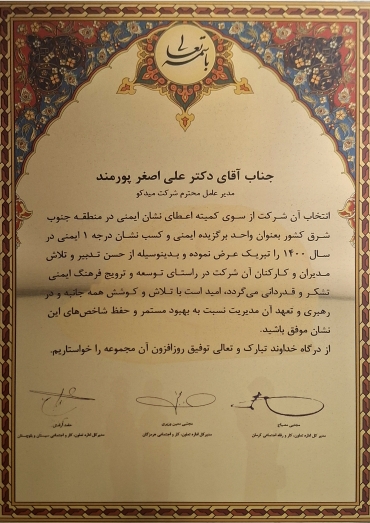 باسمه تعالی
جناب آقای دکتر علی اصغر پورمند
مدیر عامل محترم شرکت میدکو
انتخاب آن شرکت از سوی کمیته اعطای نشان ایمنی در منطقه جنوب
شرق کشور بعنوان واحد برگزیده ایمنی و کسب نشان درجه ۱ ایمنی در
سال ۱۴۰۰ را تبریک عرض نموده و بدینوسیله از حسن تدبیر و تلاش
مدیران و کارکنان آن شرکت در راستای توسعه و ترویج فرهنگ ایمنی
تشکر و قدردانی می‌گردد، امید است با تلاش و کوشش همه جانبه و در
رهبری و تعهد آن مدیریت نسبت به بهبود مستمر و حفظ شاخص‌های این
نشان موفق باشید.
از درگاه خداوند تبارک و تعالی توفیق روزافزون آن مجموعه را خواستاریم.
مجتبی
مدیرکل اداره تعاون، کار و رفاه اجتماعی کرمان
مجتبی حسین
مدیرکل اداره تعاون، کار و اجتماعی هرمزگان
مدیرکل اداره تعاون، کار و اجتماعی سیستان و بلوچستان